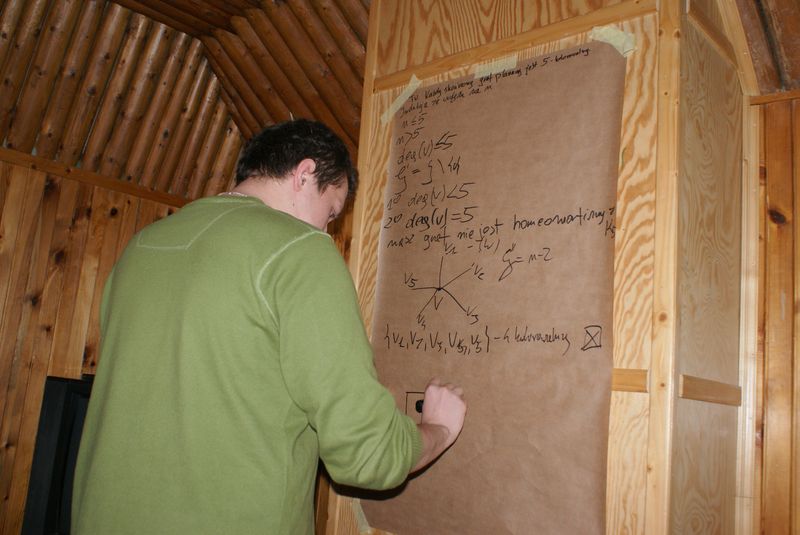 Tw. Każdy skończony graf planarny jest 5-kolorowalny
Indukcja ze względu na n
n ≤ 5
n > 5
deg(v) ≤ 5
G' = G \ {v}
1° deg(v) < 5
2° deg(v) = 5
nasz graf nie jest homeomorficzny z K5
V1
V5
V2
V
V4
V3
= n-2
{V1, V2, V3, V4, V5} - 4 kolorowalny